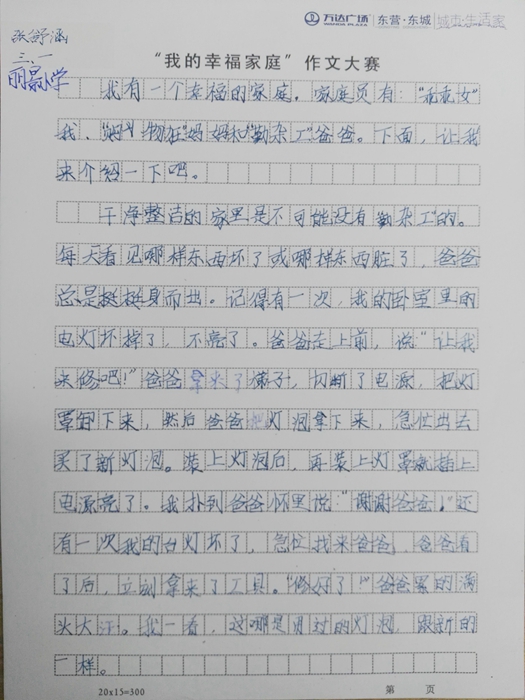 万达广场 WANDA PLAZA 东营·东城 城市·生活家
张舒涵
三、一
"我的幸福家庭"作文大赛
丽景小学
我有一个幸福的家庭。家庭员有:"乖乖女"
我、"购物狂"妈妈和"勤杂工"爸爸。下面,让我
来介绍一下吧。
干净整洁的家里是不可能没有勤杂工的。
每天看见哪样东西坏了或哪样东西脏了,爸爸
总是挺挺身而出。记得有一次,我的卧室里的
电灯坏掉了,不亮了。爸爸走上前,说"让我
来修吧!"爸爸拿来了梯子,切断了电源,把灯
罩卸下来,然后爸爸把灯泡拿下来,急忙出去
买了新灯泡。装上灯泡后,再装上灯罩就插上
电源亮了。我扑到爸爸怀里说:"谢谢爸爸!"还
有一次我的台灯坏了,急忙找来爸爸,爸爸看
了后,立刻拿来了工具。"修好了!"爸爸累的满
头大汗。我一看,这哪是用过的灯泡,跟新的
一样。
20x15=300 第 页